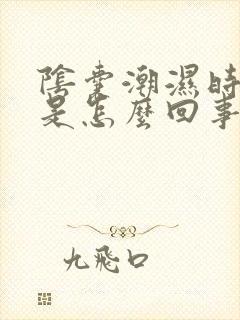 陰囊潮濕時
是怎麼回事
九飛口